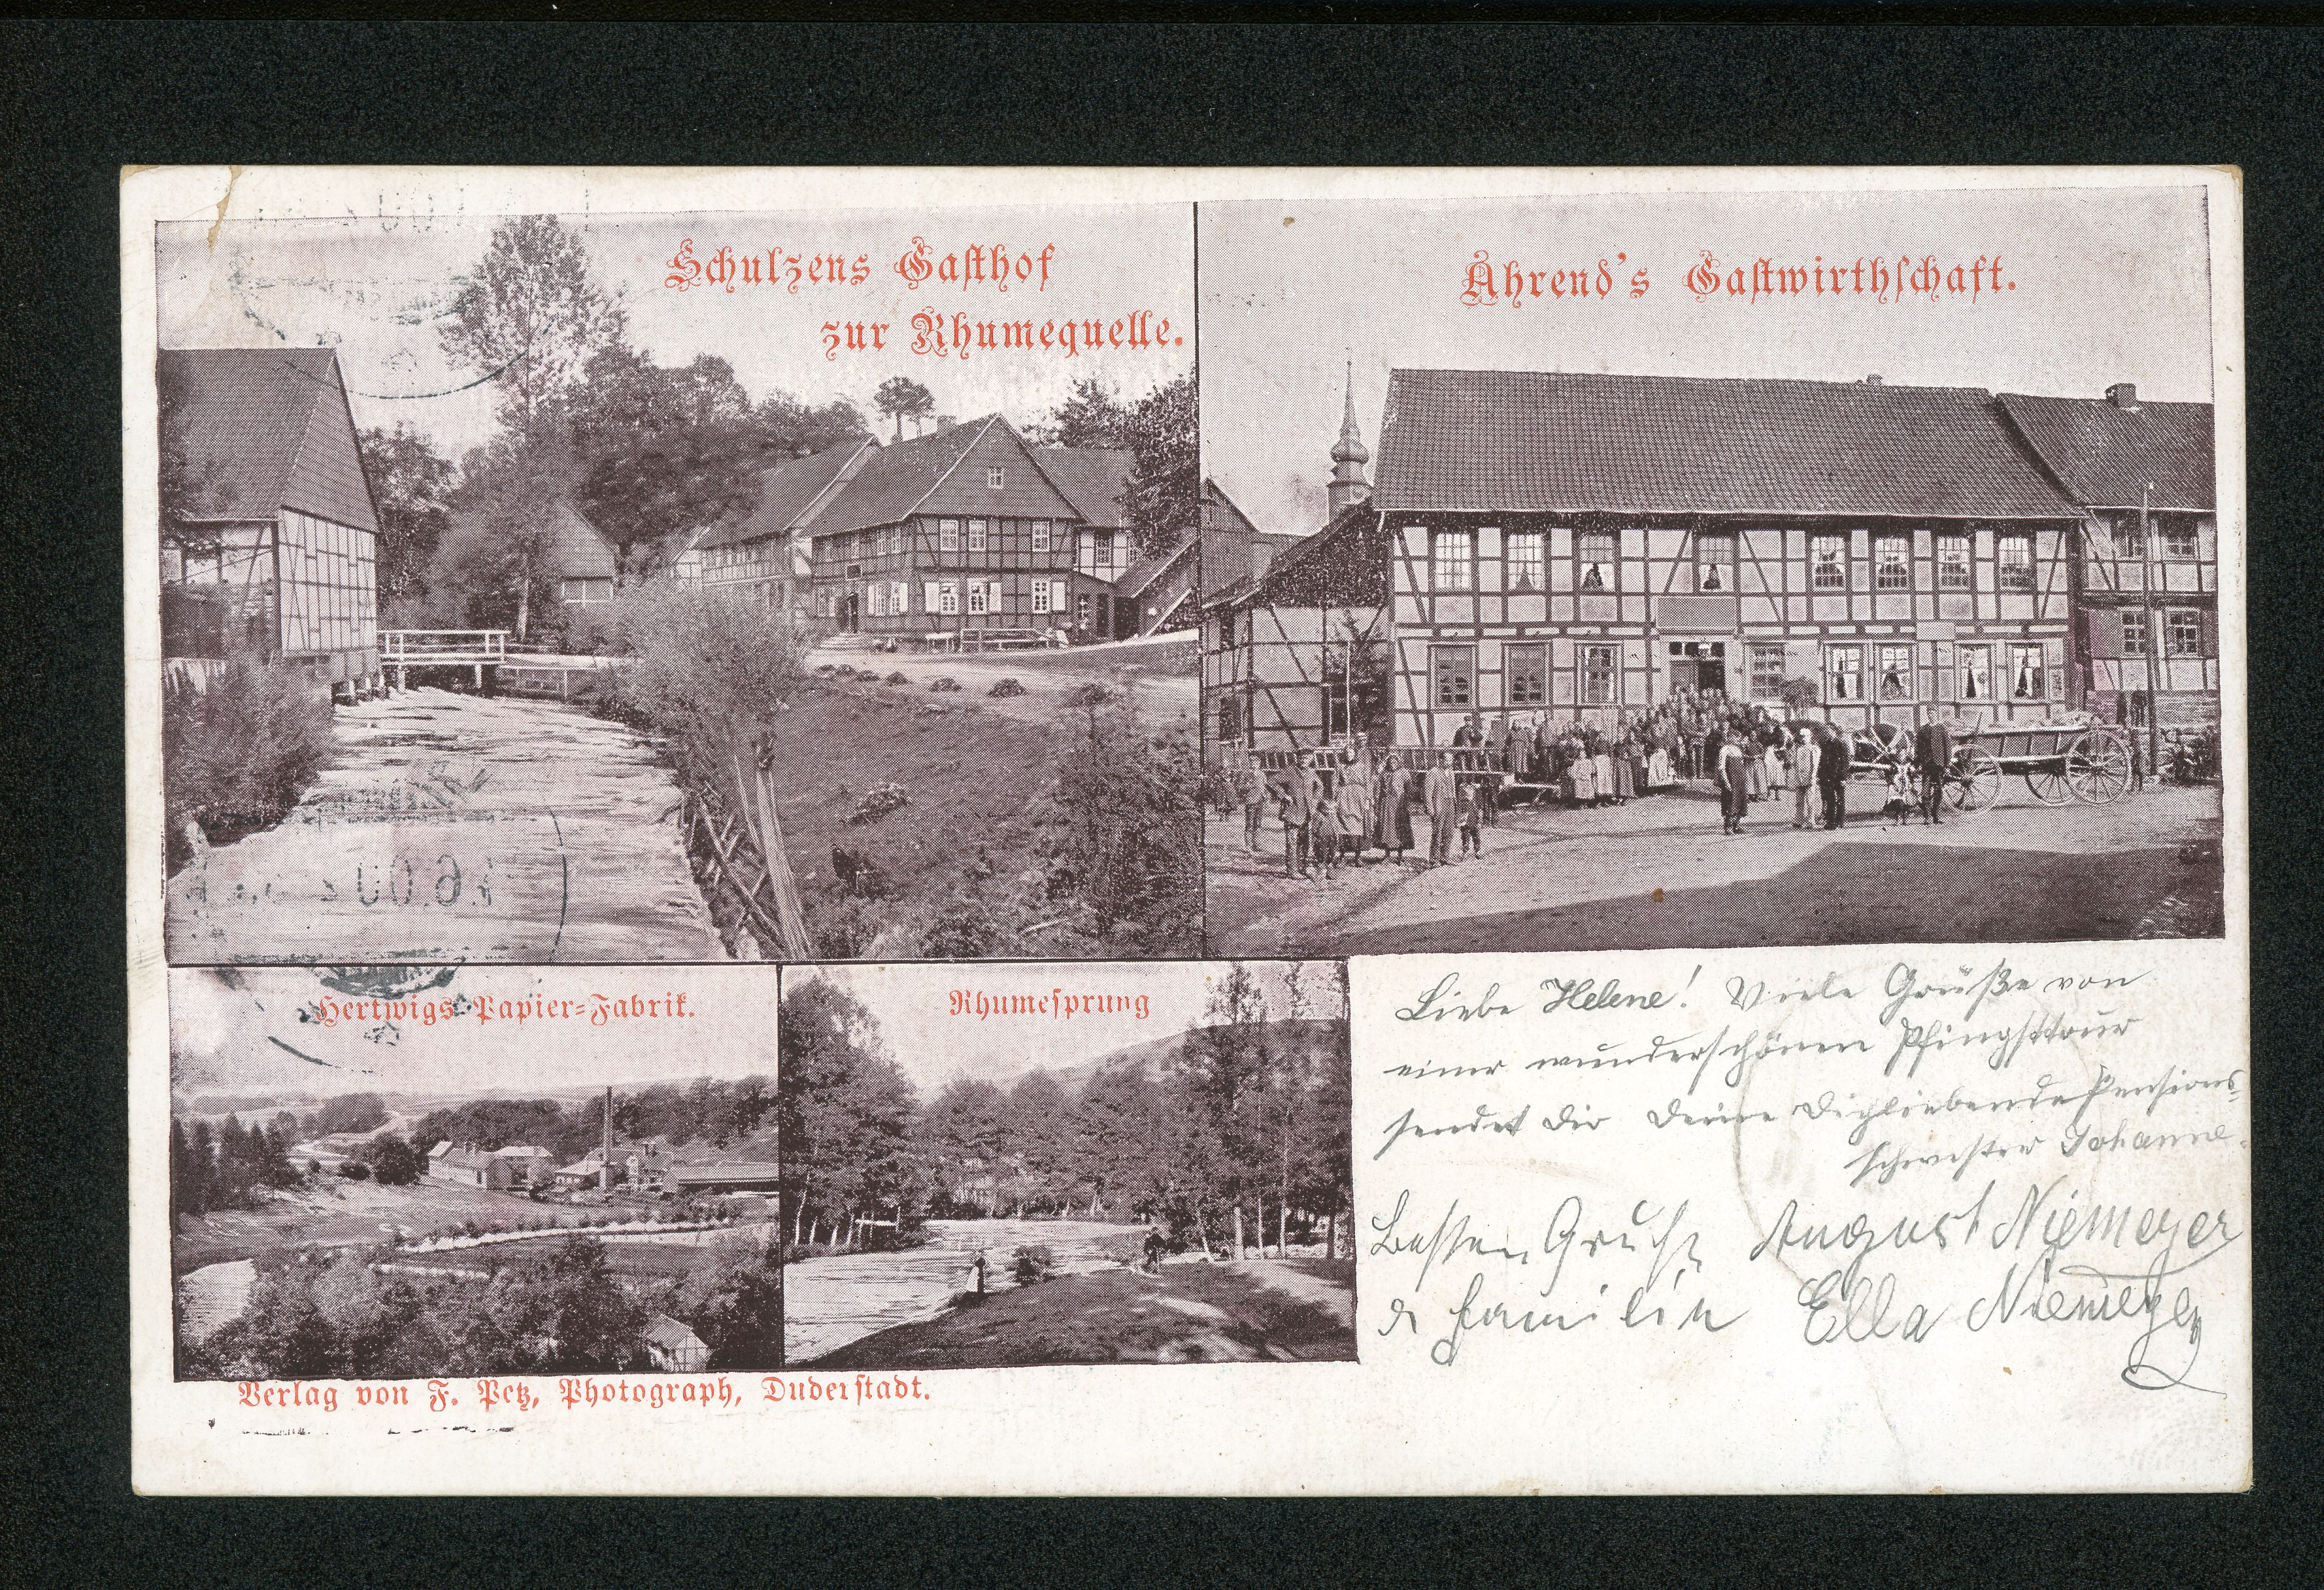 Schulzens Gasthof
zur Rhumequelle.
Ahrend's Gastwirthschaft.
Hertwigs Papier=Fabrik.
Rhumesprung
Liebe Helene! Viele Grüße von
einer wunderschönen Pfingsttour
sendet dir deine dichliebende Pensions=
schwester Johanne.
Besten Gruß August Niemeyer
& Familie Ella Niemeyer
Verlag von F. Petz, Photograph, Duderstadt.